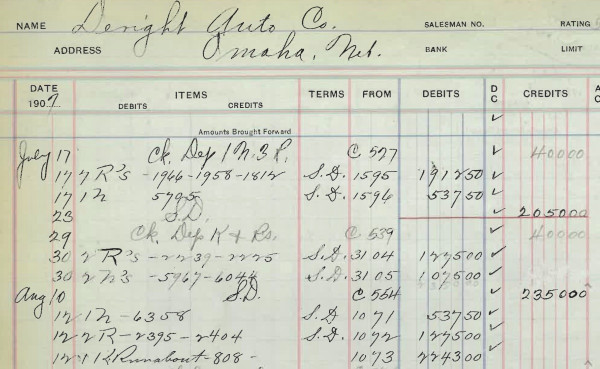 NAME Deright Auto Co. SALESMAN NO. RATING
ADDRESS Omaha, Neb. BANK LIMIT
DATE ITEMS TERMS FROM DEBITS D C CREDITS A C
1907 DEBITS CREDITS
Amounts Brought Forward ✓
July 17 Ck. Dep 1 N. 3 R. C 527 ✓ 40000
17 R's - 1966 - 1958 - 1812 S.D. 1595 191250 ✓
17 1 N 5795 S.D. 1596 53750 ✓
23 S.D. ✓ 205000
29 Ck. Dep K & Rs. C 539 ✓ 40000
30 2 R's - 2239 - 2225 S.D. 3104 127500 ✓
30 2 N's - 5967 - 6044 S.D. 3105 107500 ✓
Aug 10 S.D. C 554 ✓ 235000
12 1 N - 6358 S.D. 1071 53750 ✓
12 2 R - 2395 - 2404 S.D. 1072 127500 ✓
12 1 K Runabout - 808 - 1073 224300 ✓